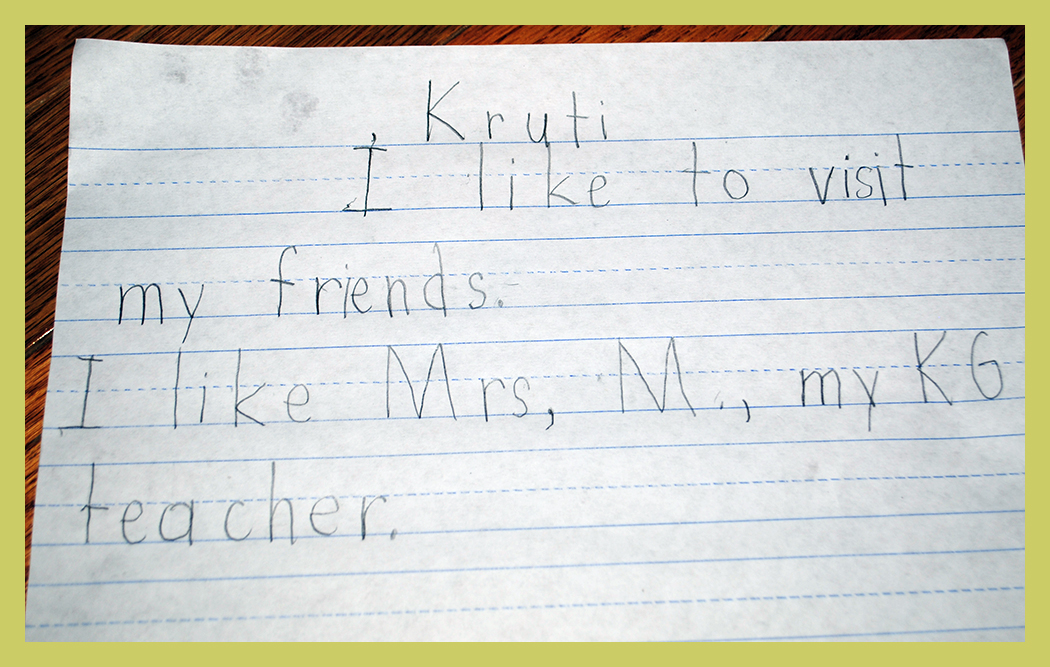 Kruti
I like to visit
my friends.
I like Mrs, M., my KG
teacher.